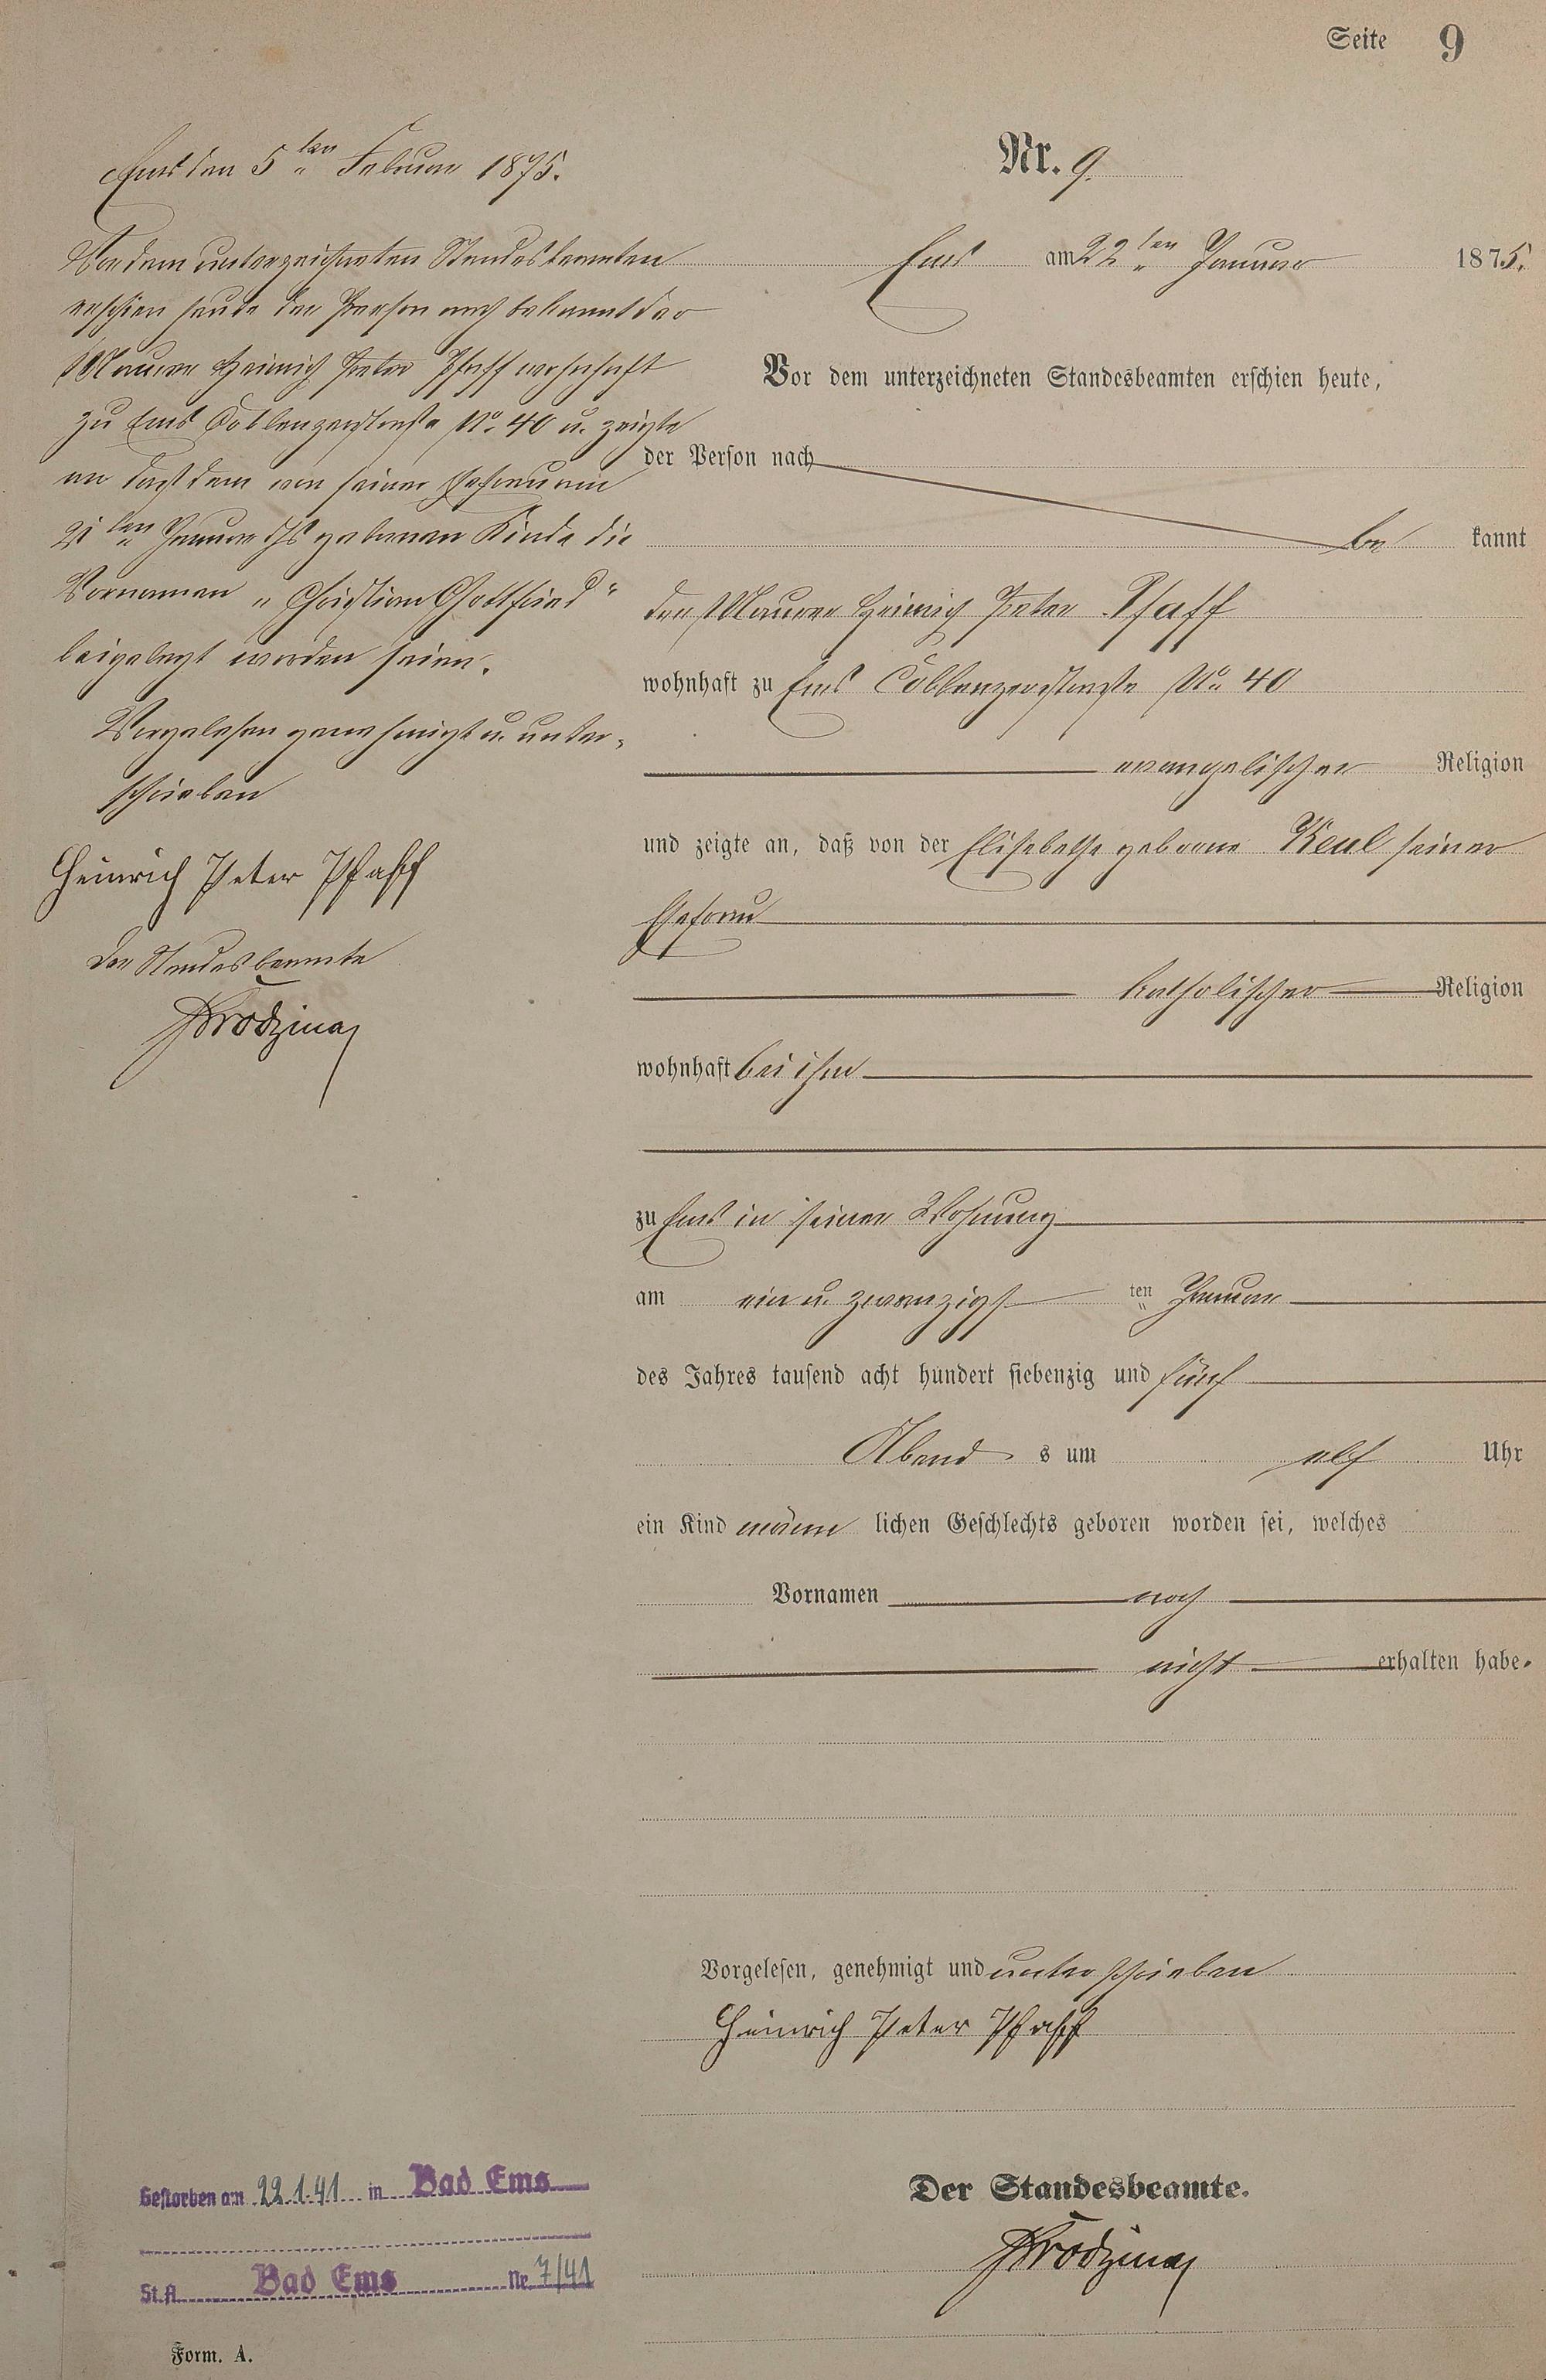 Seite 9
Ems den 5ten Februar 1875.
Vor dem unterzeichneten Standesbeamten
erschien heute der Person nach bekannt der
Maurer Heinrich Peter Pfaff wohnhaft
zu Ems Coblenzerstraße No. 40 u. zeigte
an daß dem von seiner Ehefrau am
21ten Januar ds geborenen Kinde die
Vornamen „Christian Gottfried"
beigelegt worden seien.
Vorgelesen genehmigt u. unter-
schrieben
Heinrich Peter Pfaff
Der Standesbeamte
Gestorben am 22.1.41 in Bad Ems
St.A. Bad Ems Nr. 7/41
Form. A.
Nr. 9.
Ems am 22ten Januar 1875.
Vor dem unterzeichneten Standesbeamten erschien heute,
der Person nach
be kannt
der Maurer Heinrich Peter Pfaff
wohnhaft zu Ems Coblenzerstraße No. 40
evangelischer Religion
und zeigte an, daß von der Elisabethe geborne Keul seiner
Ehefrau
katholischer Religion
wohnhaft bei ihm
zu Ems in seiner Wohnung
am ein u. zwanzigs ten Januar
des Jahres tausend acht hundert siebenzig und fünf
Abend s um elf Uhr
ein Kind männ lichen Geschlechts geboren worden sei, welches
Vornamen noch
nicht erhalten habe.
Vorgelesen, genehmigt und unterschrieben
Heinrich Peter Pfaff
Der Standesbeamte.